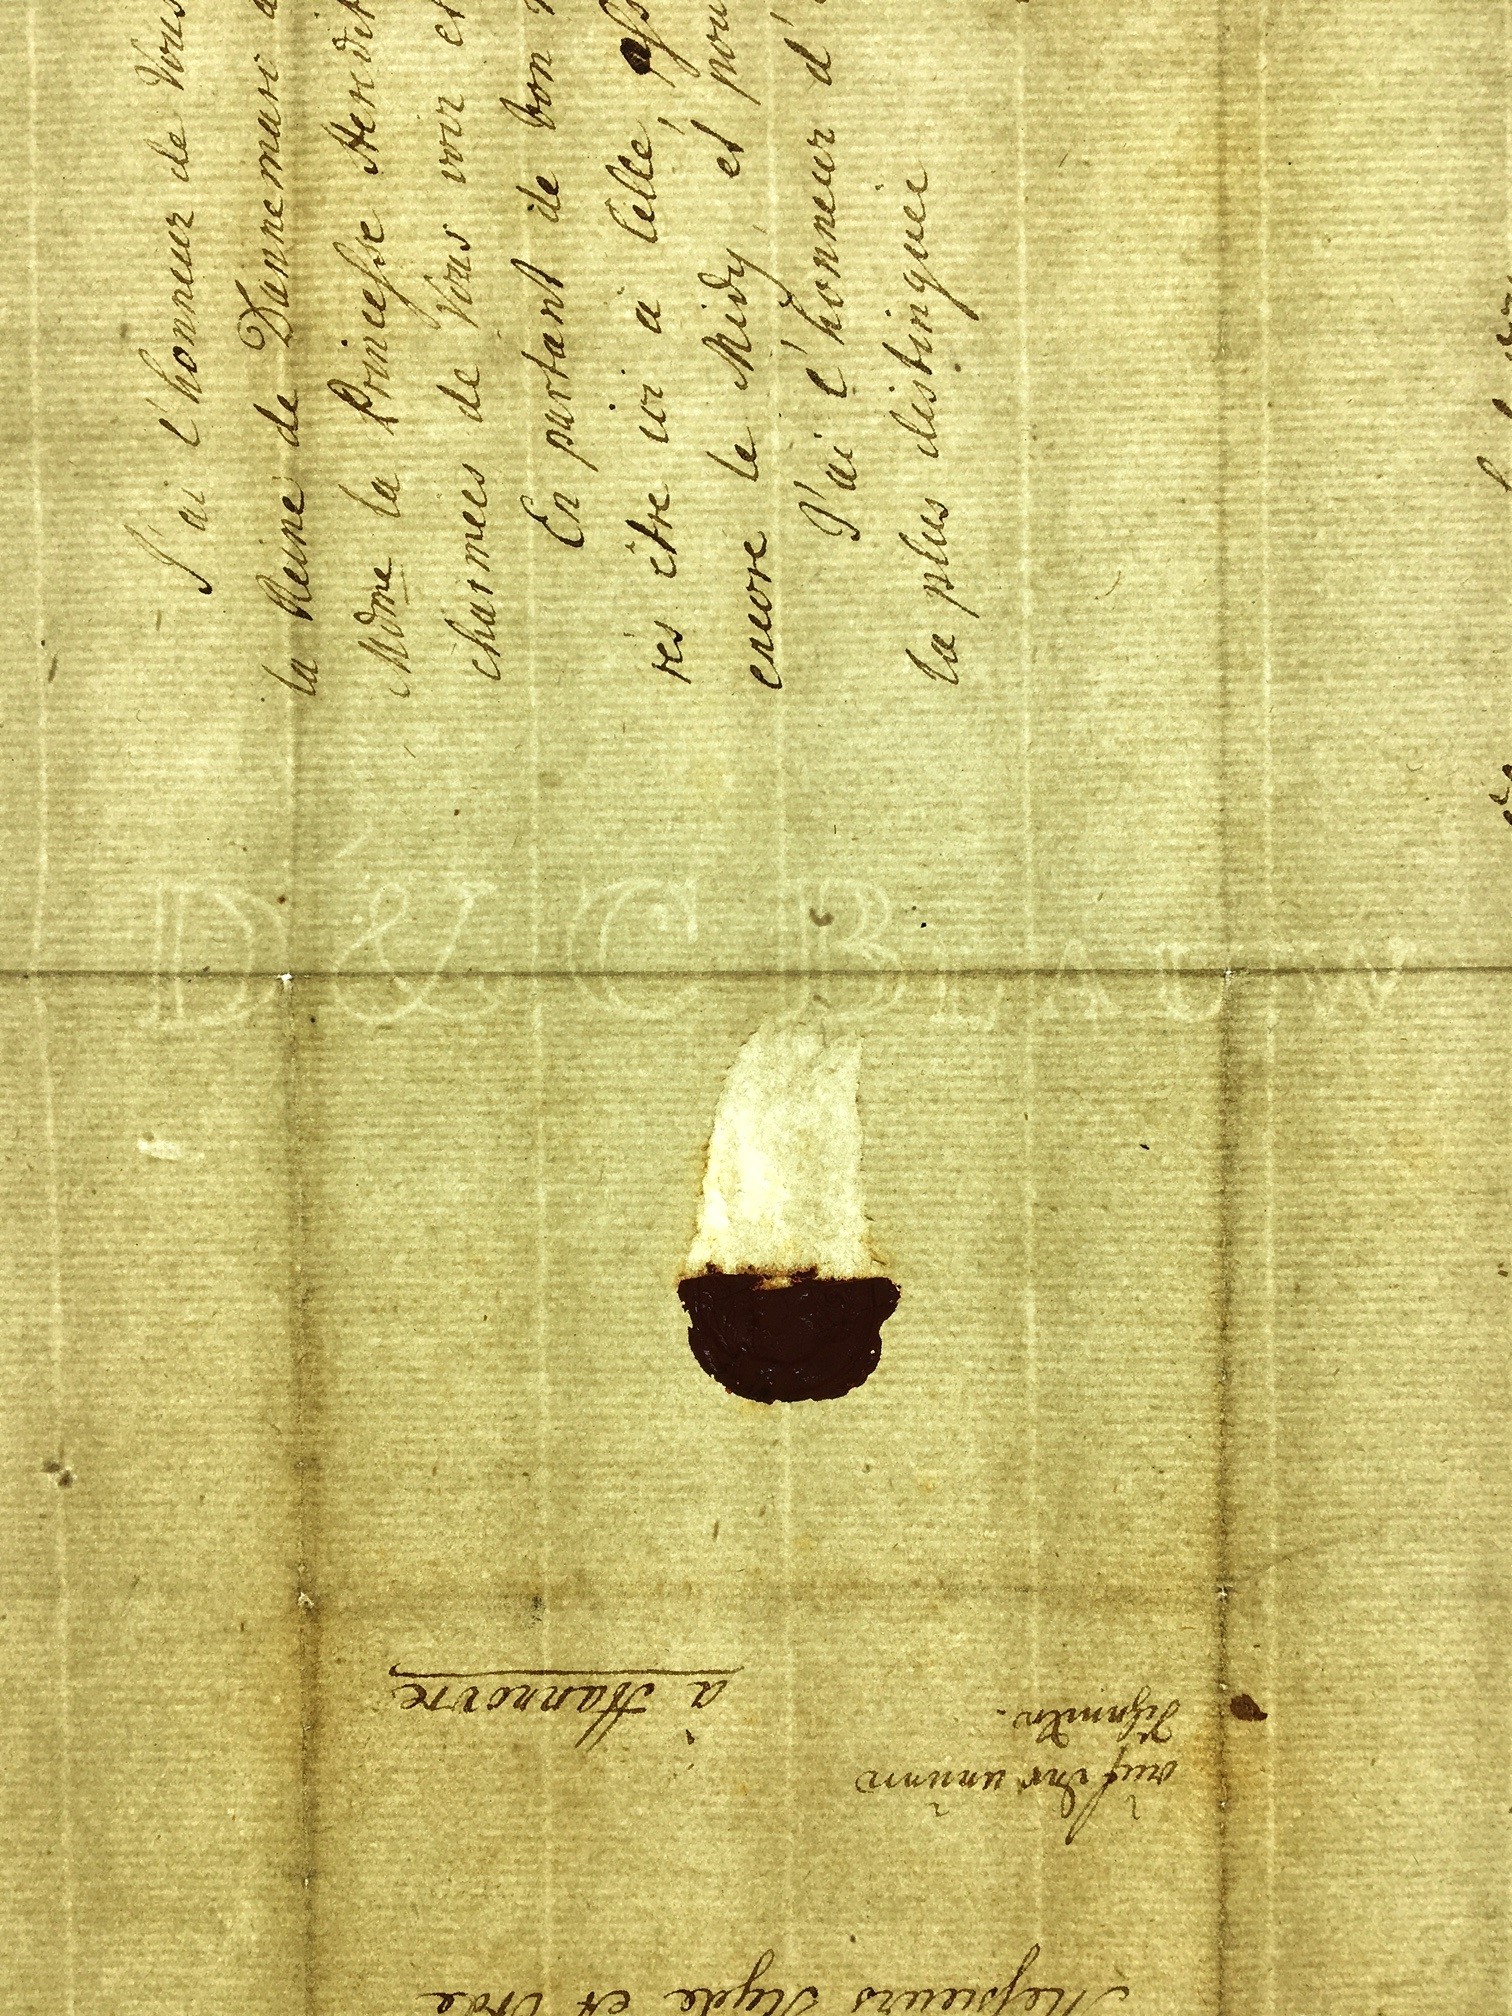 J'ai l'honneur de Vous
la Reine de Dannemarc a
Mdme la Princesse Heredit
charmées de Vous voir et
En partant de bon
res être ici à Cellé,
encore le Midy, et pou
J'ai l'honneur d'
la plus distinguée
D & C BLAUW
Messieurs Hyde et
à Hannovre
auf der neuen